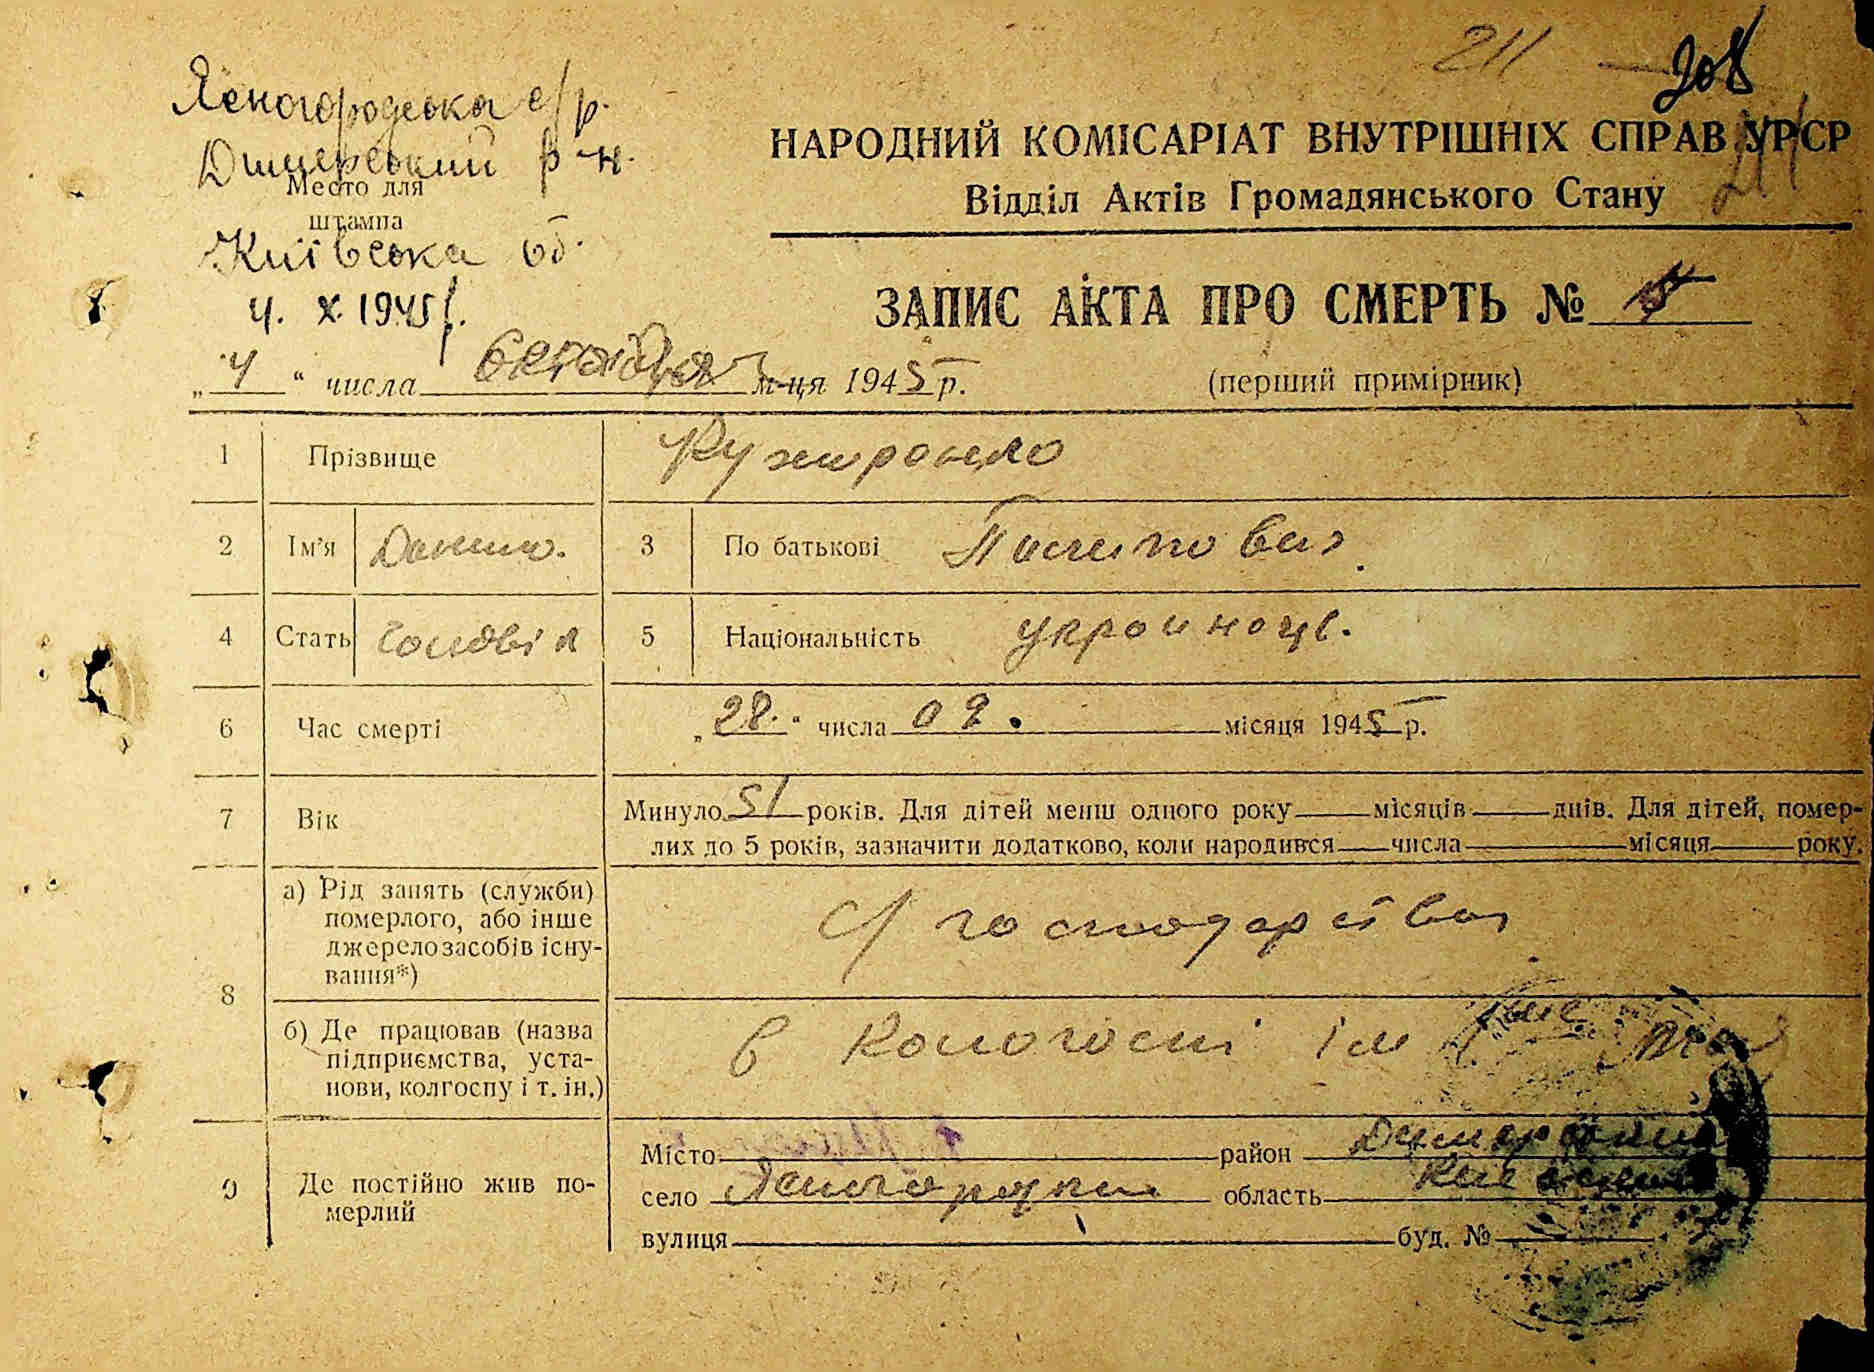 211 208
Ясногородська с/р.
Димерський р-н.
Место для
штампа
Київська об.
4. X. 1945 р.
НАРОДНИЙ КОМІСАРІАТ ВНУТРІШНІХ СПРАВ УРСР
Відділ Актів Громадянського Стану
ЗАПИС АКТА ПРО СМЕРТЬ №
„4“ числа октября м-ця 1945 р.
(перший примірник)
1 Прізвище
2 Ім’я Данило. 3 По батькові
4 Стать чоловік 5 Національність
6 Час смерті „28.“ числа 09. місяця 1945 р.
7 Вік Минуло 51 років. Для дітей менш одного року місяців днів. Для дітей, помер-
лих до 5 років, зазначити додатково, коли народився числа місяця року.
8 а) Рід занять (служби)
померлого, або інше
джерело засобів існу-
вання*)
с/господарства
б) Де працював (назва
підприємства, уста-
нови, колгоспу і т. ін.)
в колгоспі ім
9 Де постійно жив по-
мерлий
Місто район Димерський
село Ясногородка область Київська
вулиця буд. №